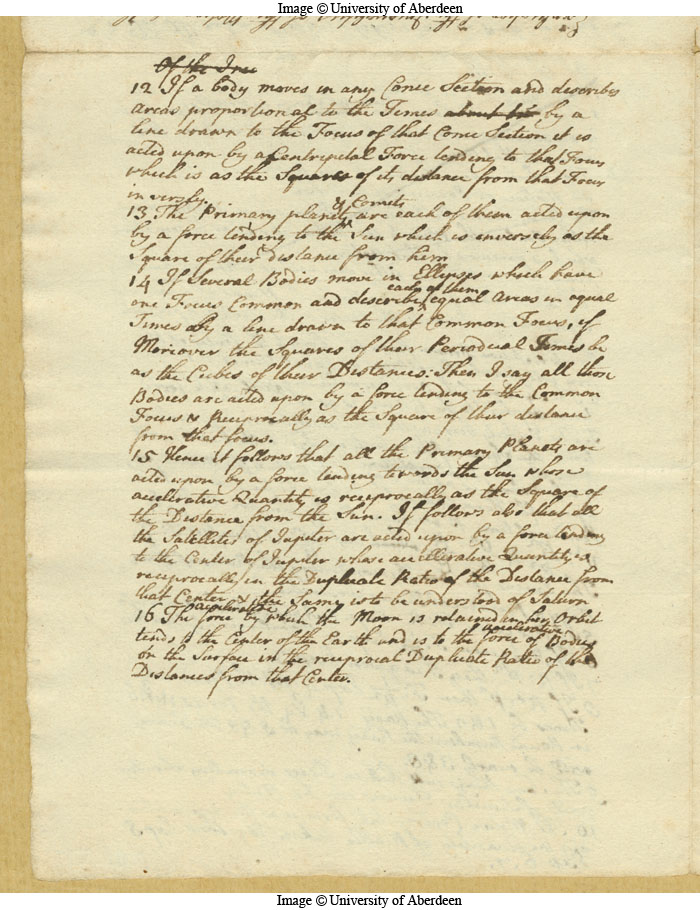 Image © University of Aberdeen
Of the Iner
12 If a body moves in any Conic Section and describes
areas proportional to the Times about by a
line drawn to the Focus of that Conic Section it is
acted upon by a Centripetal Force tending to that Focus
which is as the Square of its distance from that Focus
inversly.
& Comets
13 The Primary planets are each of them acted upon
by a force tending to the Sun which is inversely as the
Square of their distance from him
14 If Several Bodies move in Ellipses which have
each of them
one Focus Common and describe equal areas in equal
Times by a line drawn to that Common Focus, if
Moreover the Squares of their Periodical Times be
as the Cubes of their Distances: Then I say all those
Bodies are acted upon by a force tending to the Common
Focus & Reciprocally as the Square of their distance
from that focus.
15 Hence it follows that all the Primary Planets are
acted upon by a force tending towards the Sun whose
accelerative Quantity is reciprocally as the Square of
the Distance from the Sun. It follows also that all
the Satellites of Jupiter are acted upon by a force tending
to the Center of Jupiter whose accellerative Quantity is
reciprocally in the Duplicate Ratio of the Distance from
that Center & the Same is to be understood of Saturn
accelerative
16 The force by which the Moon is retained in her Orbit
accelerative
tends to the Center of the Earth and is to the force of Bodies
on the Surface in the reciprocal Duplicate Ratio of the
Distances from that Center.
Image © University of Aberdeen